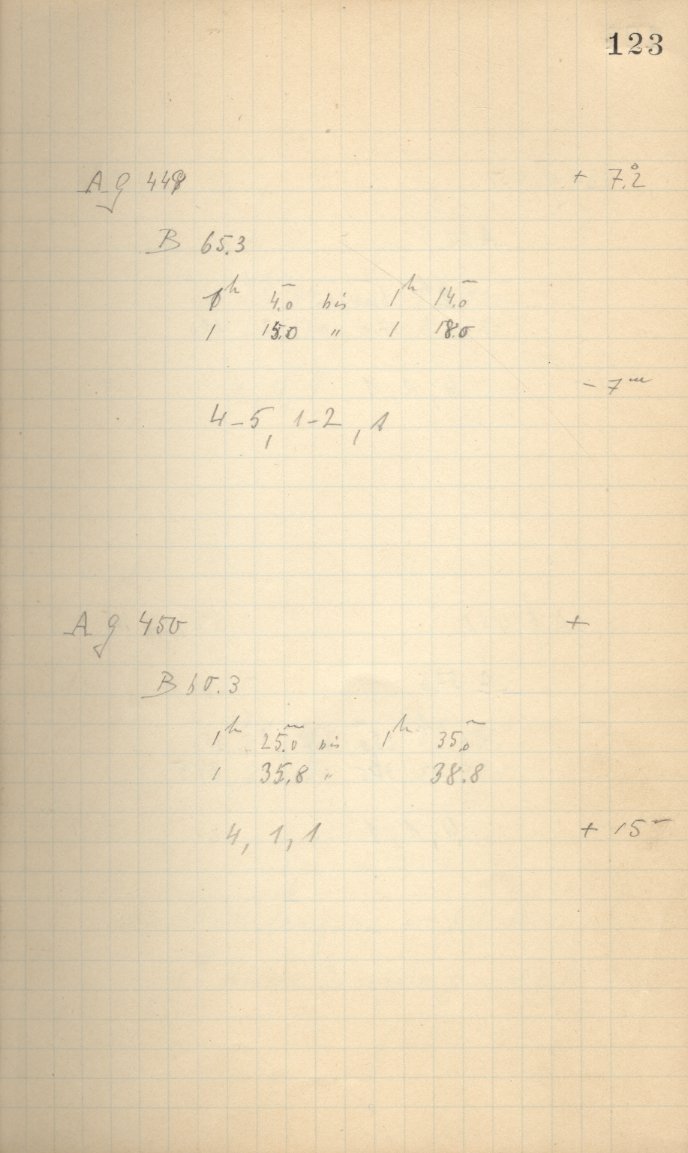 123
A g 449 + 7.°2
B 65.3
1ʰ 4.ᵐ0 bis 1ʰ 14.ᵐ0
1 15.0 " 1 18.0
- 7ᵐ
4-5, 1-2, 1
A g 450 +
B 60.3
1ʰ 25.ᵐ0 bis 1ʰ 35.ᵐ0
1 35.8 " 38.8
4, 1, 1 + 15ᵐ